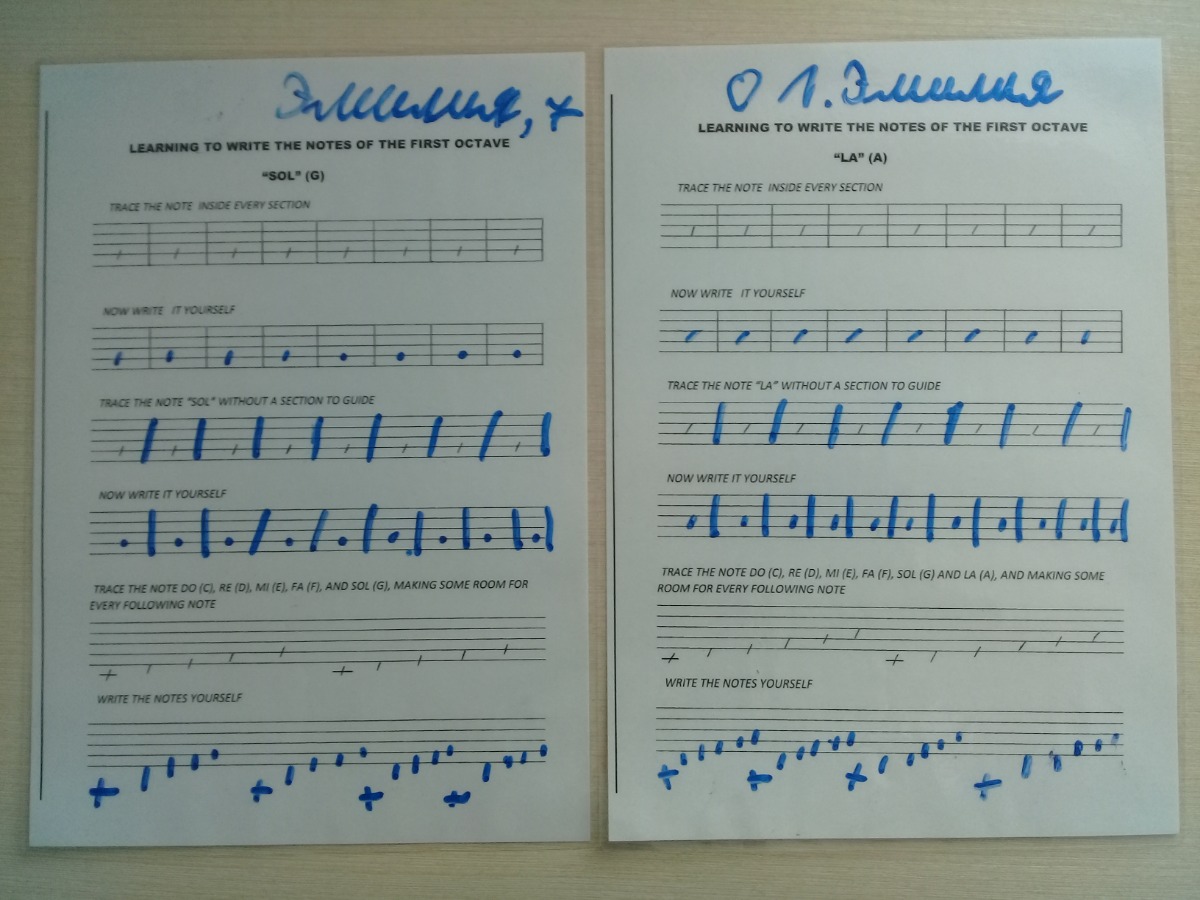 Эмилия, 7
LEARNING TO WRITE THE NOTES OF THE FIRST OCTAVE
“SOL” (G)
TRACE THE NOTE INSIDE EVERY SECTION
NOW WRITE IT YOURSELF
TRACE THE NOTE “SOL” WITHOUT A SECTION TO GUIDE
NOW WRITE IT YOURSELF
TRACE THE NOTE DO (C), RE (D), MI (E), FA (F), AND SOL (G), MAKING SOME ROOM FOR
EVERY FOLLOWING NOTE
WRITE THE NOTES YOURSELF
Эмилия
LEARNING TO WRITE THE NOTES OF THE FIRST OCTAVE
“LA” (A)
TRACE THE NOTE INSIDE EVERY SECTION
NOW WRITE IT YOURSELF
TRACE THE NOTE “LA” WITHOUT A SECTION TO GUIDE
NOW WRITE IT YOURSELF
TRACE THE NOTE DO (C), RE (D), MI (E), FA (F), SOL (G) AND LA (A), AND MAKING SOME
ROOM FOR EVERY FOLLOWING NOTE
WRITE THE NOTES YOURSELF